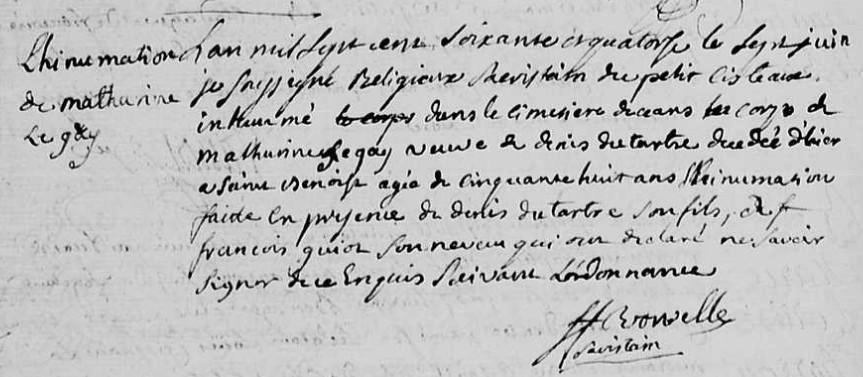 Lhinumation
de mathurine
Le gay
Lan mil sept cent soixante et quatorse le sept juin
je soussigné Religieux Sacristain du petit cisteaux
inhumé dans le cimetiere de ceans le corps de
mathurine Le gay veuve de denis dutartre decedée d'hier
a saint Benoist agée de cinquante huit ans Lhinumation
faide en presence de denis dutartre son fils, de
francois guiot son neveu qui ont declaré ne savoir
signer de ce Enquis suivant Lordonnance
Sacristain